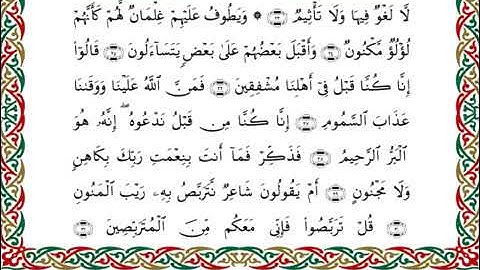 لَّا لَغْوٌ فِيهَا وَلَا تَأْثِيمٌ ۝٢٣ ۞ وَيَطُوفُ عَلَيْهِمْ غِلْمَانٌ لَّهُمْ كَأَنَّهُمْ
لُؤْلُؤٌ مَّكْنُونٌ ۝٢٤ وَأَقْبَلَ بَعْضُهُمْ عَلَىٰ بَعْضٍ يَتَسَآءَلُونَ ۝٢٥ قَالُوٓا۟
إِنَّا كُنَّا قَبْلُ فِىٓ أَهْلِنَا مُشْفِقِينَ ۝٢٦ فَمَنَّ ٱللَّهُ عَلَيْنَا وَوَقَىٰنَا
عَذَابَ ٱلسَّمُومِ ۝٢٧ إِنَّا كُنَّا مِن قَبْلُ نَدْعُوهُ ۖ إِنَّهُۥ هُوَ
ٱلْبَرُّ ٱلرَّحِيمُ ۝٢٨ فَذَكِّرْ فَمَآ أَنتَ بِنِعْمَتِ رَبِّكَ بِكَاهِنٍ
وَلَا مَجْنُونٍ ۝٢٩ أَمْ يَقُولُونَ شَاعِرٌ نَّتَرَبَّصُ بِهِۦ رَيْبَ ٱلْمَنُونِ
۝٣٠ قُلْ تَرَبَّصُوا۟ فَإِنِّى مَعَكُم مِّنَ ٱلْمُتَرَبِّصِينَ ۝٣١